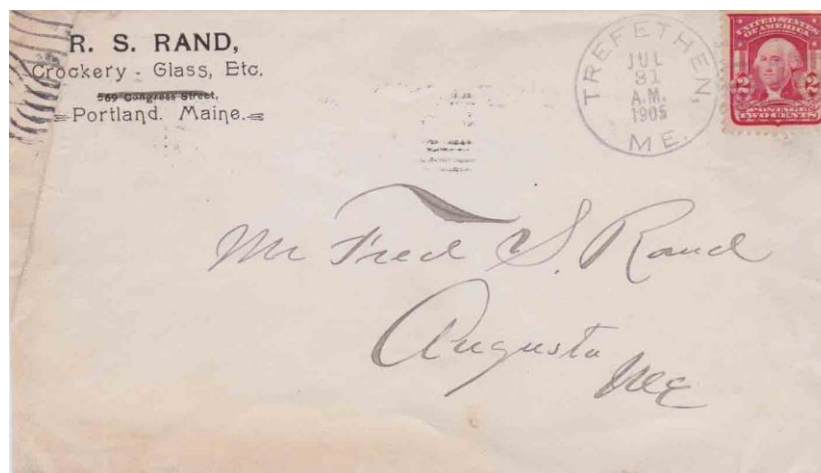 R. S. RAND,
Crockery - Glass, Etc.
569 Congress Street,
Portland. Maine.
TREFETHEN,
JUL
31
A.M.
1905
ME.
UNITED STATES
OF AMERICA
2 2
POSTAGE
TWO CENTS
Mr Fred S. Rand
Augusta
Me